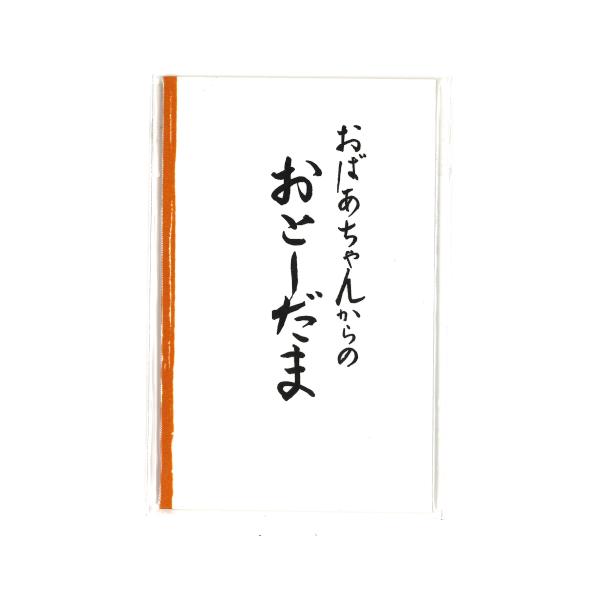 おばあちゃんからの
おとーだま